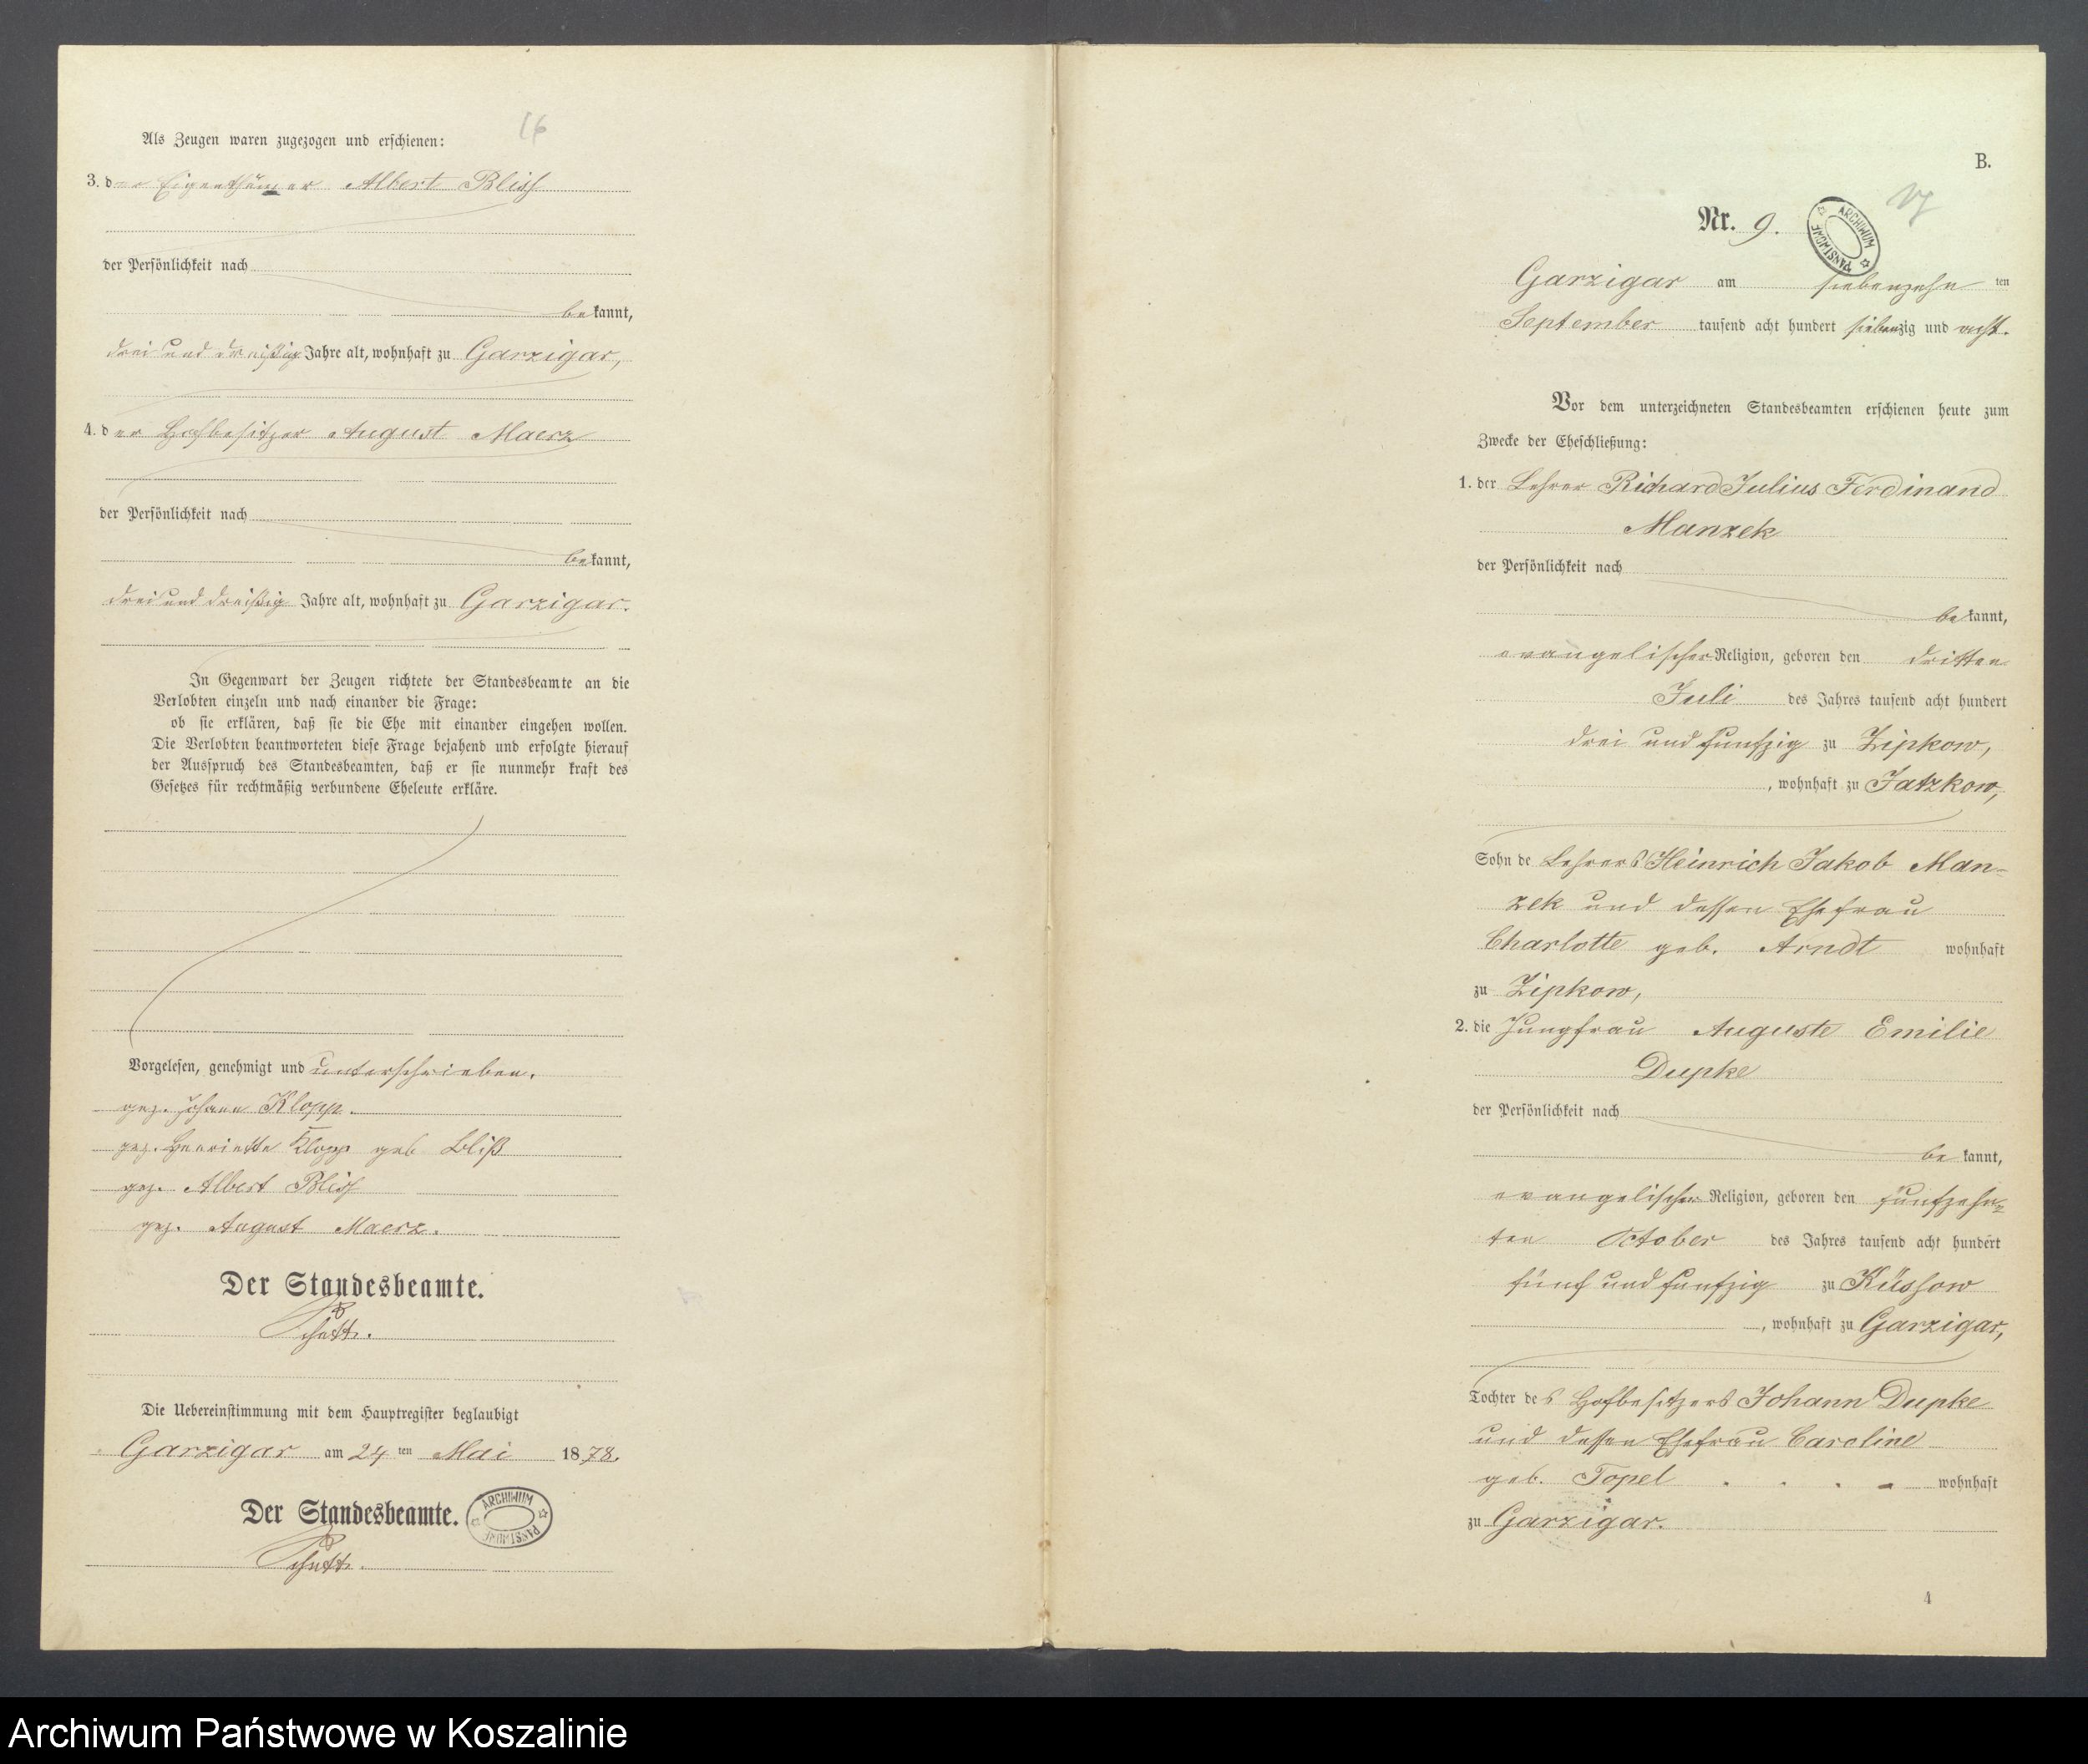 16
Als Zeugen waren zugezogen und erschienen:
3. der Eigenthümer Albert Bliss
der Persönlichkeit nach
bekannt,
drei und dreißig Jahre alt, wohnhaft zu Garzigar,
4. der Hofbesitzer August Maerz
der Persönlichkeit nach
bekannt,
drei und dreißig Jahre alt, wohnhaft zu Garzigar.
In Gegenwart der Zeugen richtete der Standesbeamte an die
Verlobten einzeln und nach einander die Frage:
ob sie erklären, daß sie die Ehe mit einander eingehen wollen.
Die Verlobten beantworteten diese Frage bejahend und erfolgte hierauf
der Ausspruch des Standesbeamten, daß er sie nunmehr kraft des
Gesetzes für rechtmäßig verbundene Eheleute erkläre.
Vorgelesen, genehmigt und unterschrieben.
gez. Johann Klopp.
gez. Henriette Klopp geb Bliß
gez. Albert Bliss
gez. August Maerz.
Der Standesbeamte.
Die Uebereinstimmung mit dem Hauptregister beglaubigt
Garzigar am 24 ten Mai 1878.
Der Standesbeamte.
ARCHIWUM PAŃSTWOWE
B.
17
Nr. 9.
ARCHIWUM PAŃSTWOWE
Garzigar am siebenzehn ten
September tausend acht hundert siebenzig und acht.
Vor dem unterzeichneten Standesbeamten erschienen heute zum
Zwecke der Eheschließung:
1. der Lehrer Richard Julius Ferdinand
Manzek
der Persönlichkeit nach
bekannt,
evangelischer Religion, geboren den dritten
Juli des Jahres tausend acht hundert
drei und funfzig zu Zipkow,
, wohnhaft zu Jatzkow,
Sohn des Lehrers Heinrich Jakob Man-
zek und dessen Ehefrau
Charlotte geb. Arndt wohnhaft
zu Zipkow,
2. die Jungfrau Auguste Emilie
Dupke
der Persönlichkeit nach
bekannt,
evangelischer Religion, geboren den funfzehn-
ten October des Jahres tausend acht hundert
fünf und funfzig zu Küssow
, wohnhaft zu Garzigar,
Tochter des Hofbesitzers Johann Dupke
und dessen Ehefrau Caroline
geb. Topel wohnhaft
zu Garzigar.
4
Archiwum Państwowe w Koszalinie